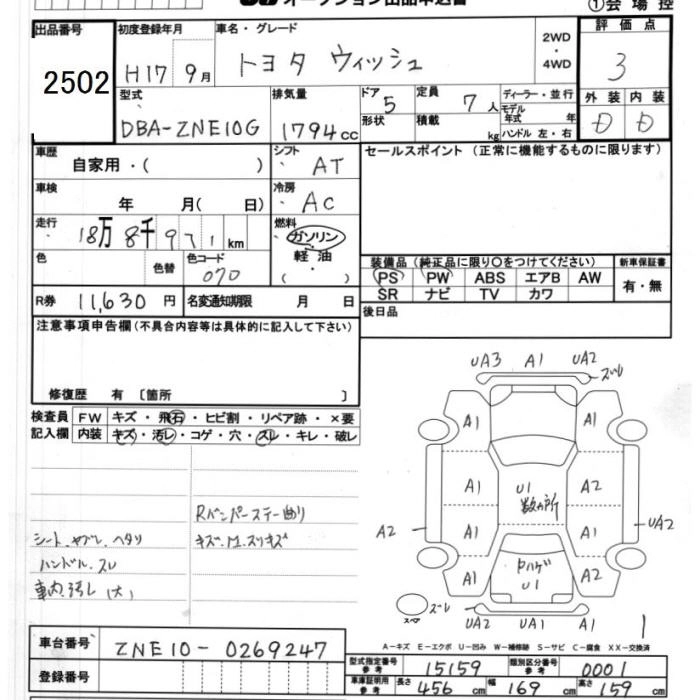 オークション出品申込書
①会場控
出品番号 2502
初度登録年月 H17 9月
車名・グレード トヨタ ウィッシュ
2WD・4WD
評価点 3
型式 DBA-ZNE10G
排気量 1794cc
ドア 5 形状
定員 7人 積載 kg
ディーラー・並行
モデル年式 年
ハンドル 左・右
外装 内装
D D
車歴 自家用・( )
シフト AT
セールスポイント (正常に機能するものに限ります)
車検 年 月( 日)
冷房 AC
走行 18万8千971km
燃料 ガソリン 軽油 ( ・ )
色 色替
色コード 070
装備品 (純正品に限り○をつけてください)
新車保証書
PS PW ABS エアB AW
SR ナビ TV カワ
有・無
R券 11,630円
名変通知期限 月 日
後日品
注意事項申告欄 (不具合内容等は具体的に記入して下さい)
修復歴 有 〔箇所 〕
検査員記入欄
FW キズ・飛石・ヒビ割・リペア跡・×要
内装 キズ・汚レ・コゲ・穴・スレ・キレ・破レ
Rバンパーステー曲り
シート、ヤブレ、ヘタリ
キズ、M、スリキズ
ハンドル、スレ
車内汚レ(大)
UA3 A1 UA2
ズレ
A1 A1
A1 U1 数ヵ所 A2
A2 A1 A2 UA2
A1 Dハゲ U1 A2
スペア ズレ
UA2 UA1 A1
1
A-キズ E-エクボ U-凹み W-補修跡 S-サビ C-腐食 XX-交換済
車台番号 ZNE10-0269247
型式指定番号 参考 15159
類別区分番号 参考 0001
登録番号
車庫証明用 参考 長さ 456cm 幅 169cm 高さ 159cm